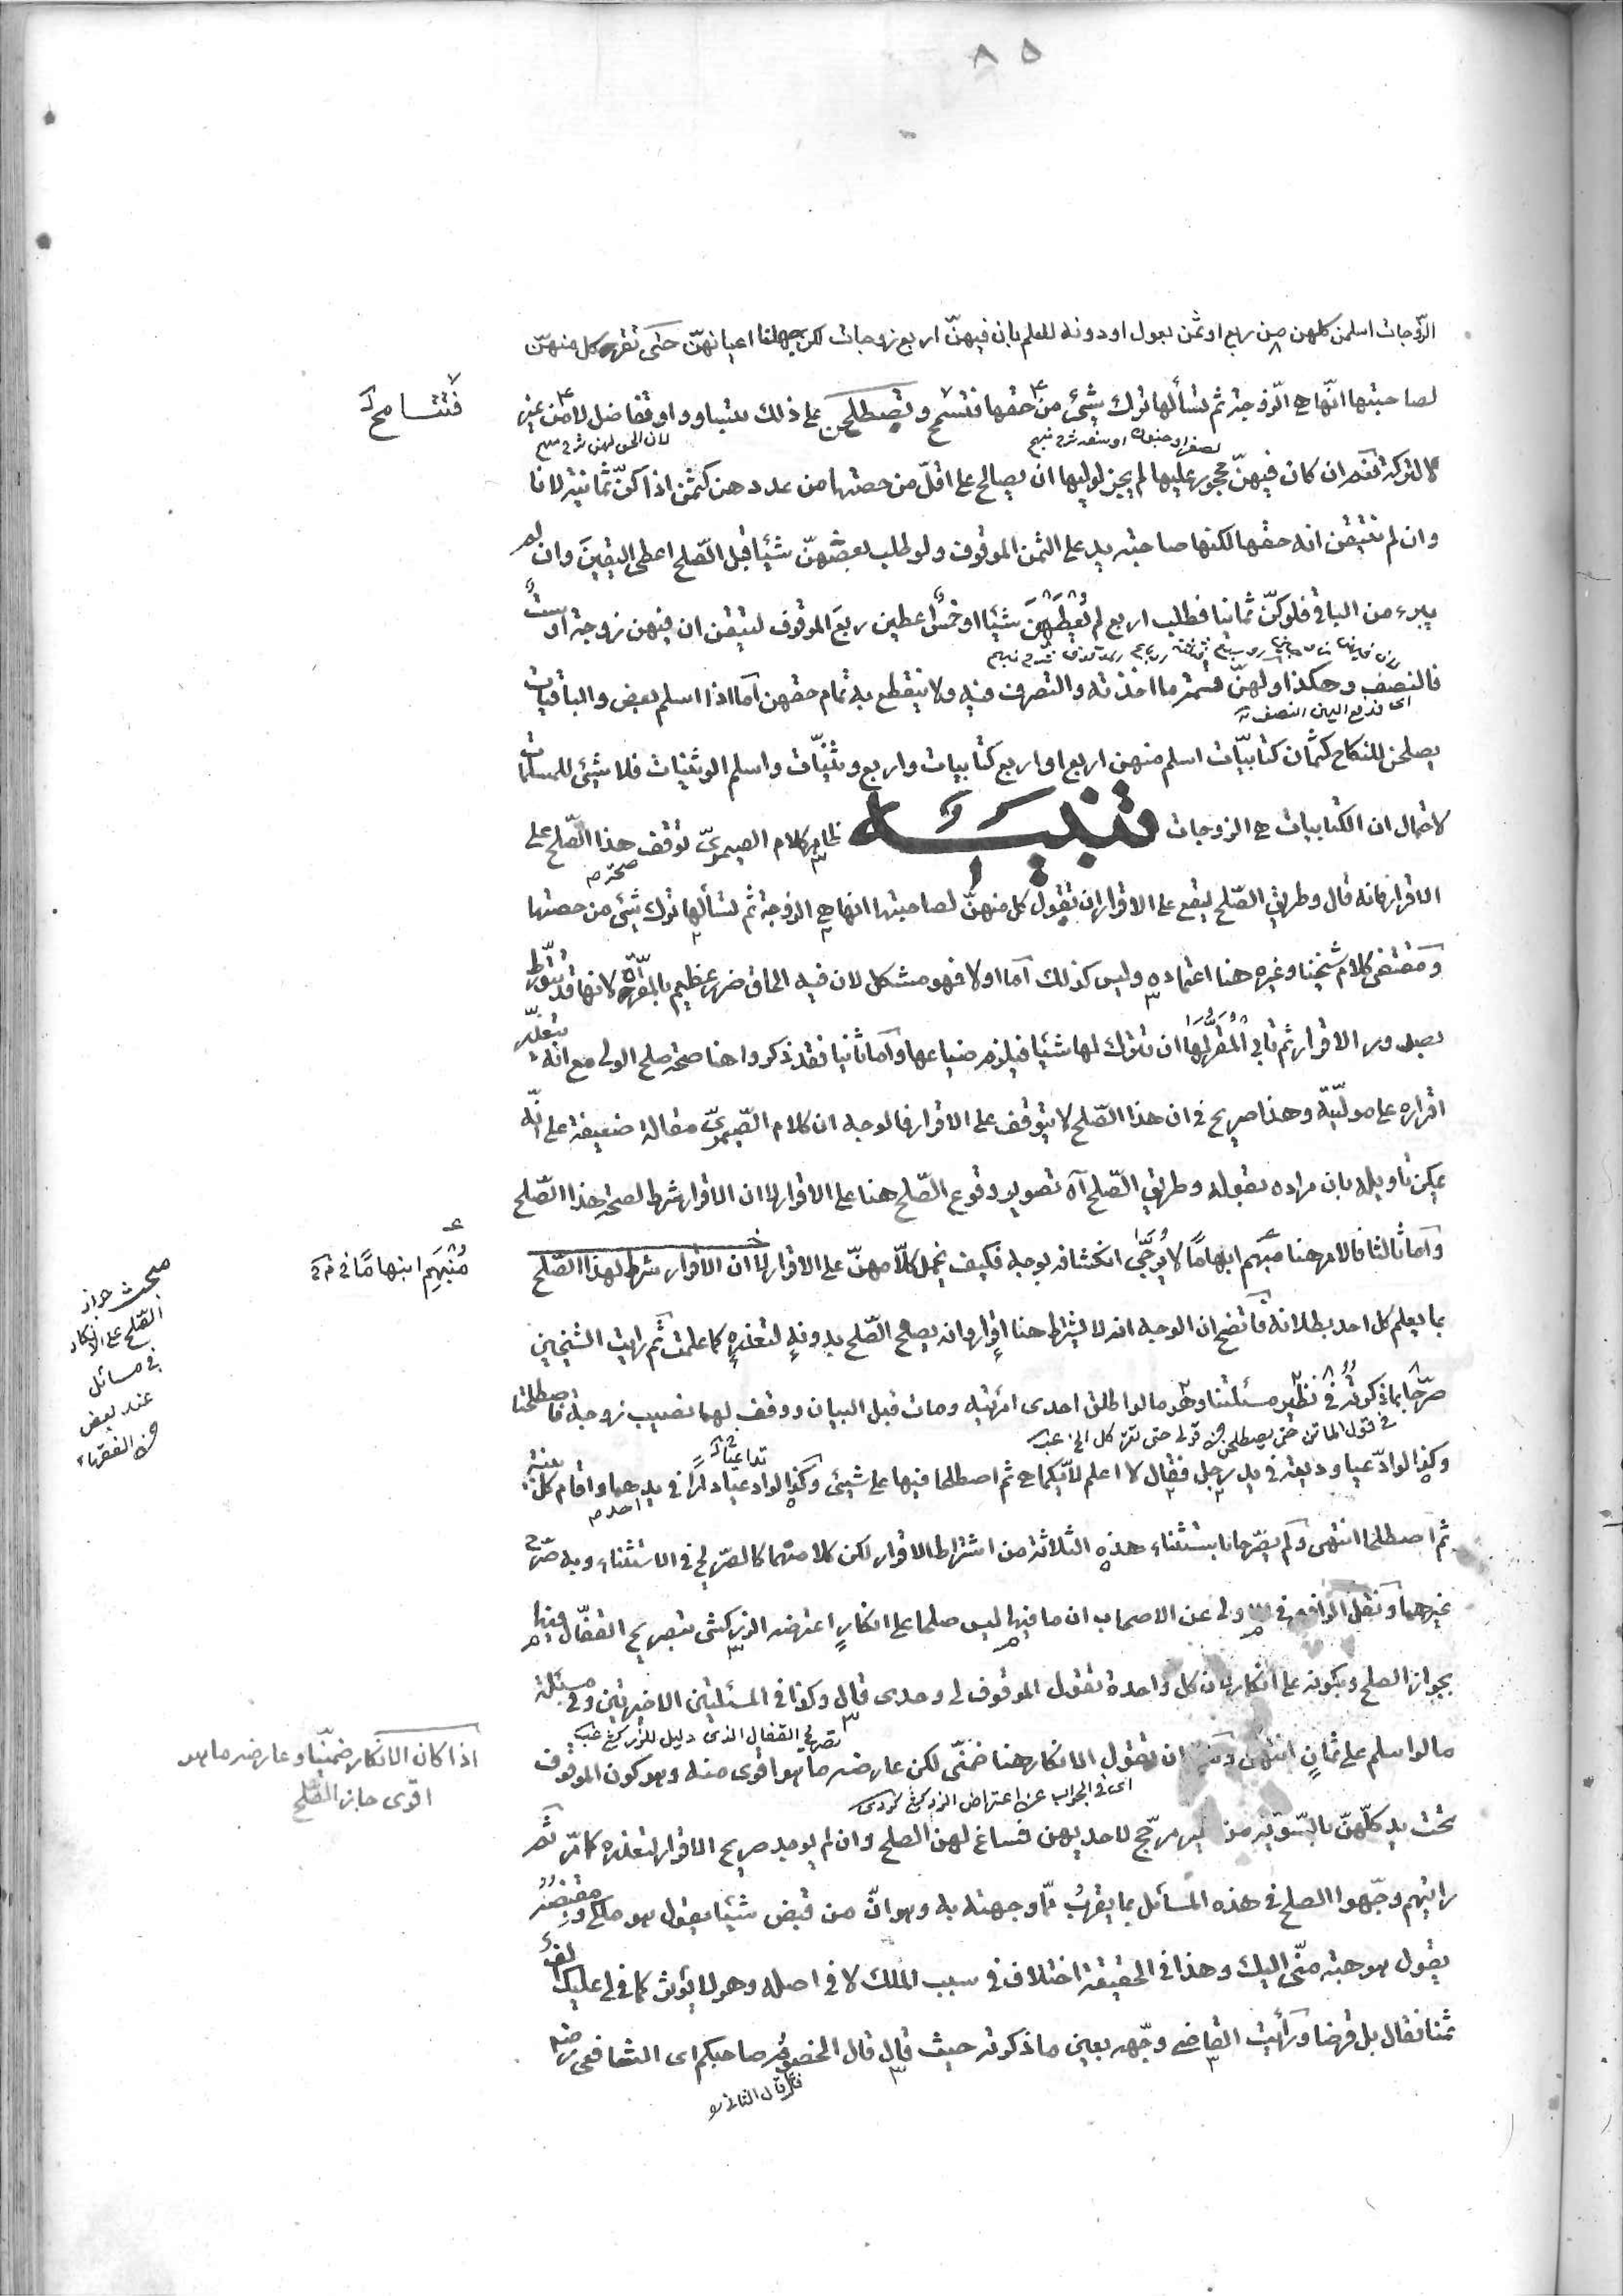 ٨٥
الزّوجات اسلمن كلهن من ربع او ثمن بعول او دونه للعلم بان فيهنّ اربع زوجات لكن جهلنا اعيانهنّ حتى تقر كل منهنّ
لصاحبتها انّها هي الزّوجة ثم تسألها ترك شيئ من حقها فتسمح وتصطلحن على ذلك بتساو او تفاضل لا من غير
فتتسامح
لان الحق لهن شرح منهج
التركة نعم ان كان فيهنّ محجور عليها لم يجز لوليها ان يصالح على اقلّ من حصتها من عددهن كثمن اذا كنّ ثمانية لانا
وان لم نتيقن انه حقها لكنها صاحبة يد على الثمن الموقوف ولو طلب بعضهنّ شيئا قبل الصّلح اعطى اليقين وان لم
يبرء من الباقي فلو كنّ ثمانيا فطلب اربع لم تعطهن شيئا او خمس اعطين ربع الموقوف لتيقن ان فيهن زوجة او ستّ
فالنصف وهكذا ولهنّ قسمة ما اخذنه والتصرف فيه ولا ينقطع به تمام حقهن اما اذا اسلم بعض والباقيات
اى فدفع اليهن النصف
يصلحن للنكاح كثمان كتابيّات اسلم منهن اربع او اربع كتابيات واربع وثنيّات واسلم الوثنيات فلا شيئ للمسلمات
لاحتمال ان الكتابيات هي الزوجات تنبيه ظاهر كلام الصيمريّ توقف هذا الصّلح على
صحة
الاقرار فانه قال وطريق الصّلح ليقع على الاقرار ان تقول كل منهنّ لصاحبتها انها هي الزوجة ثم تسألها ترك شيئ من حصتها
ومقتضى كلام شيخنا وغيره هنا اعتماده وليس كذلك اما اولا فهو مشكل لان فيه الحاق ضرر عظيم بالمقرة لانها قد تتورّط
بصدور الاقرار ثم تأبى المقرّ لها ان تترك لها شيئا فيلزم ضياعها واما ثانيا فقد ذكروا هنا صحة صلح الولى مع انه يتعذّر
اقراره على موليّته وهذا صريح في ان هذا الصّلح لا يتوقف على الاقرار فالوجه ان كلام الصّيمريّ مقالة ضعيفة على انّه
يمكن تأويله بان مراده بقوله وطريق الصّلح آه تصوير وقوع الصّلح هنا على الاقرار لا ان الاقرار شرط لصحة هذا الصّلح
واما ثالثا فالامر هنا مبهم ابهاما لا يرجّى انكشافه بوجه فكيف نحمل كلّا منهنّ على الاقرار لا ان الاقرار شرط لهذا الصّلح
مُنْبَهِم انبهامًا
بما يعلم كل احد بطلانه فاتضح ان الوجه انه لا يشترط هنا اقرار وانه يصح الصّلح بدونه لتعذره كما علمت ثم رايت الشيخين
مبحث جواز
الصّلح على الانكار
في مسائل
عند بعض
من الفقهاء
صرّحا بما ذكرته في نظير مسئلتنا وهو ما لو طلق احدى امرئتيه ومات قبل البيان ووقف لهما نصيب زوجة فاصطلحتا
في قول الماتن حتى يصطلحن من قولى حتى تقرّ كل الخ
وكذا لو ادّعيا وديعة في يد رجل فقال لا اعلم لايّكما هي ثم اصطلحا فيها على شيئ وكذا لو ادعيا دارًا في يدهما واقام كلّ بينة
تداعيا
ثم اصطلحا انتهى ولم يصرّحا باستثناء هذه الثلاثة من اشتراط الاقرار لكن كلامهما كالصّريح في الاستثناء وبه صرّح
غيرهما ونقل الرافعي في الاولى عن الاصحاب ان ما فيها ليس صلحا على انكارٍ اعترضه الزركشى بتصريح القفّال فيها
بجواز الصلح وبكونه على انكار لان كل واحدة تقول الموقوف لى وحدى قال وكذا في المسئلتين الاخيرتين وفي مسئلة
تصريح القفال الذى دليل للزركشي
ما لو اسلم على ثمانٍ انتهى ان تقول الانكار هنا ضمنّى لكن عارضه ما هو اقوى منه وهو كون الموقوف
اذا كان الانكار ضمنيّا وعارضه ما هو
اقوى جاز الصّلح
اى في الجواب عن اعتراض الزركشي
تحت يد كلّهنّ بالسّوية من غير مرجّح لاحديهن فساغ لهن الصلح وان لم يوجد صريح الاقرار لتعذره كما مرّ ثم
رايتهم وجّهوا الصلح في هذه المسائل بما يقرب ممّا وجهته به وهو انّ من قبض شيئا يقول هو ملكي
يقول هو هبة منّى اليك وهذا في الحقيقة اختلاف في سبب الملك لا في اصله وهو لا يؤثر كما في لى عليك الف
ثمنا فقال بل قرضا ورأيت القاضي وجّهه بعين ما ذكرته حيث قال قال الخصوم صاحبكم اى الشافعى رضه